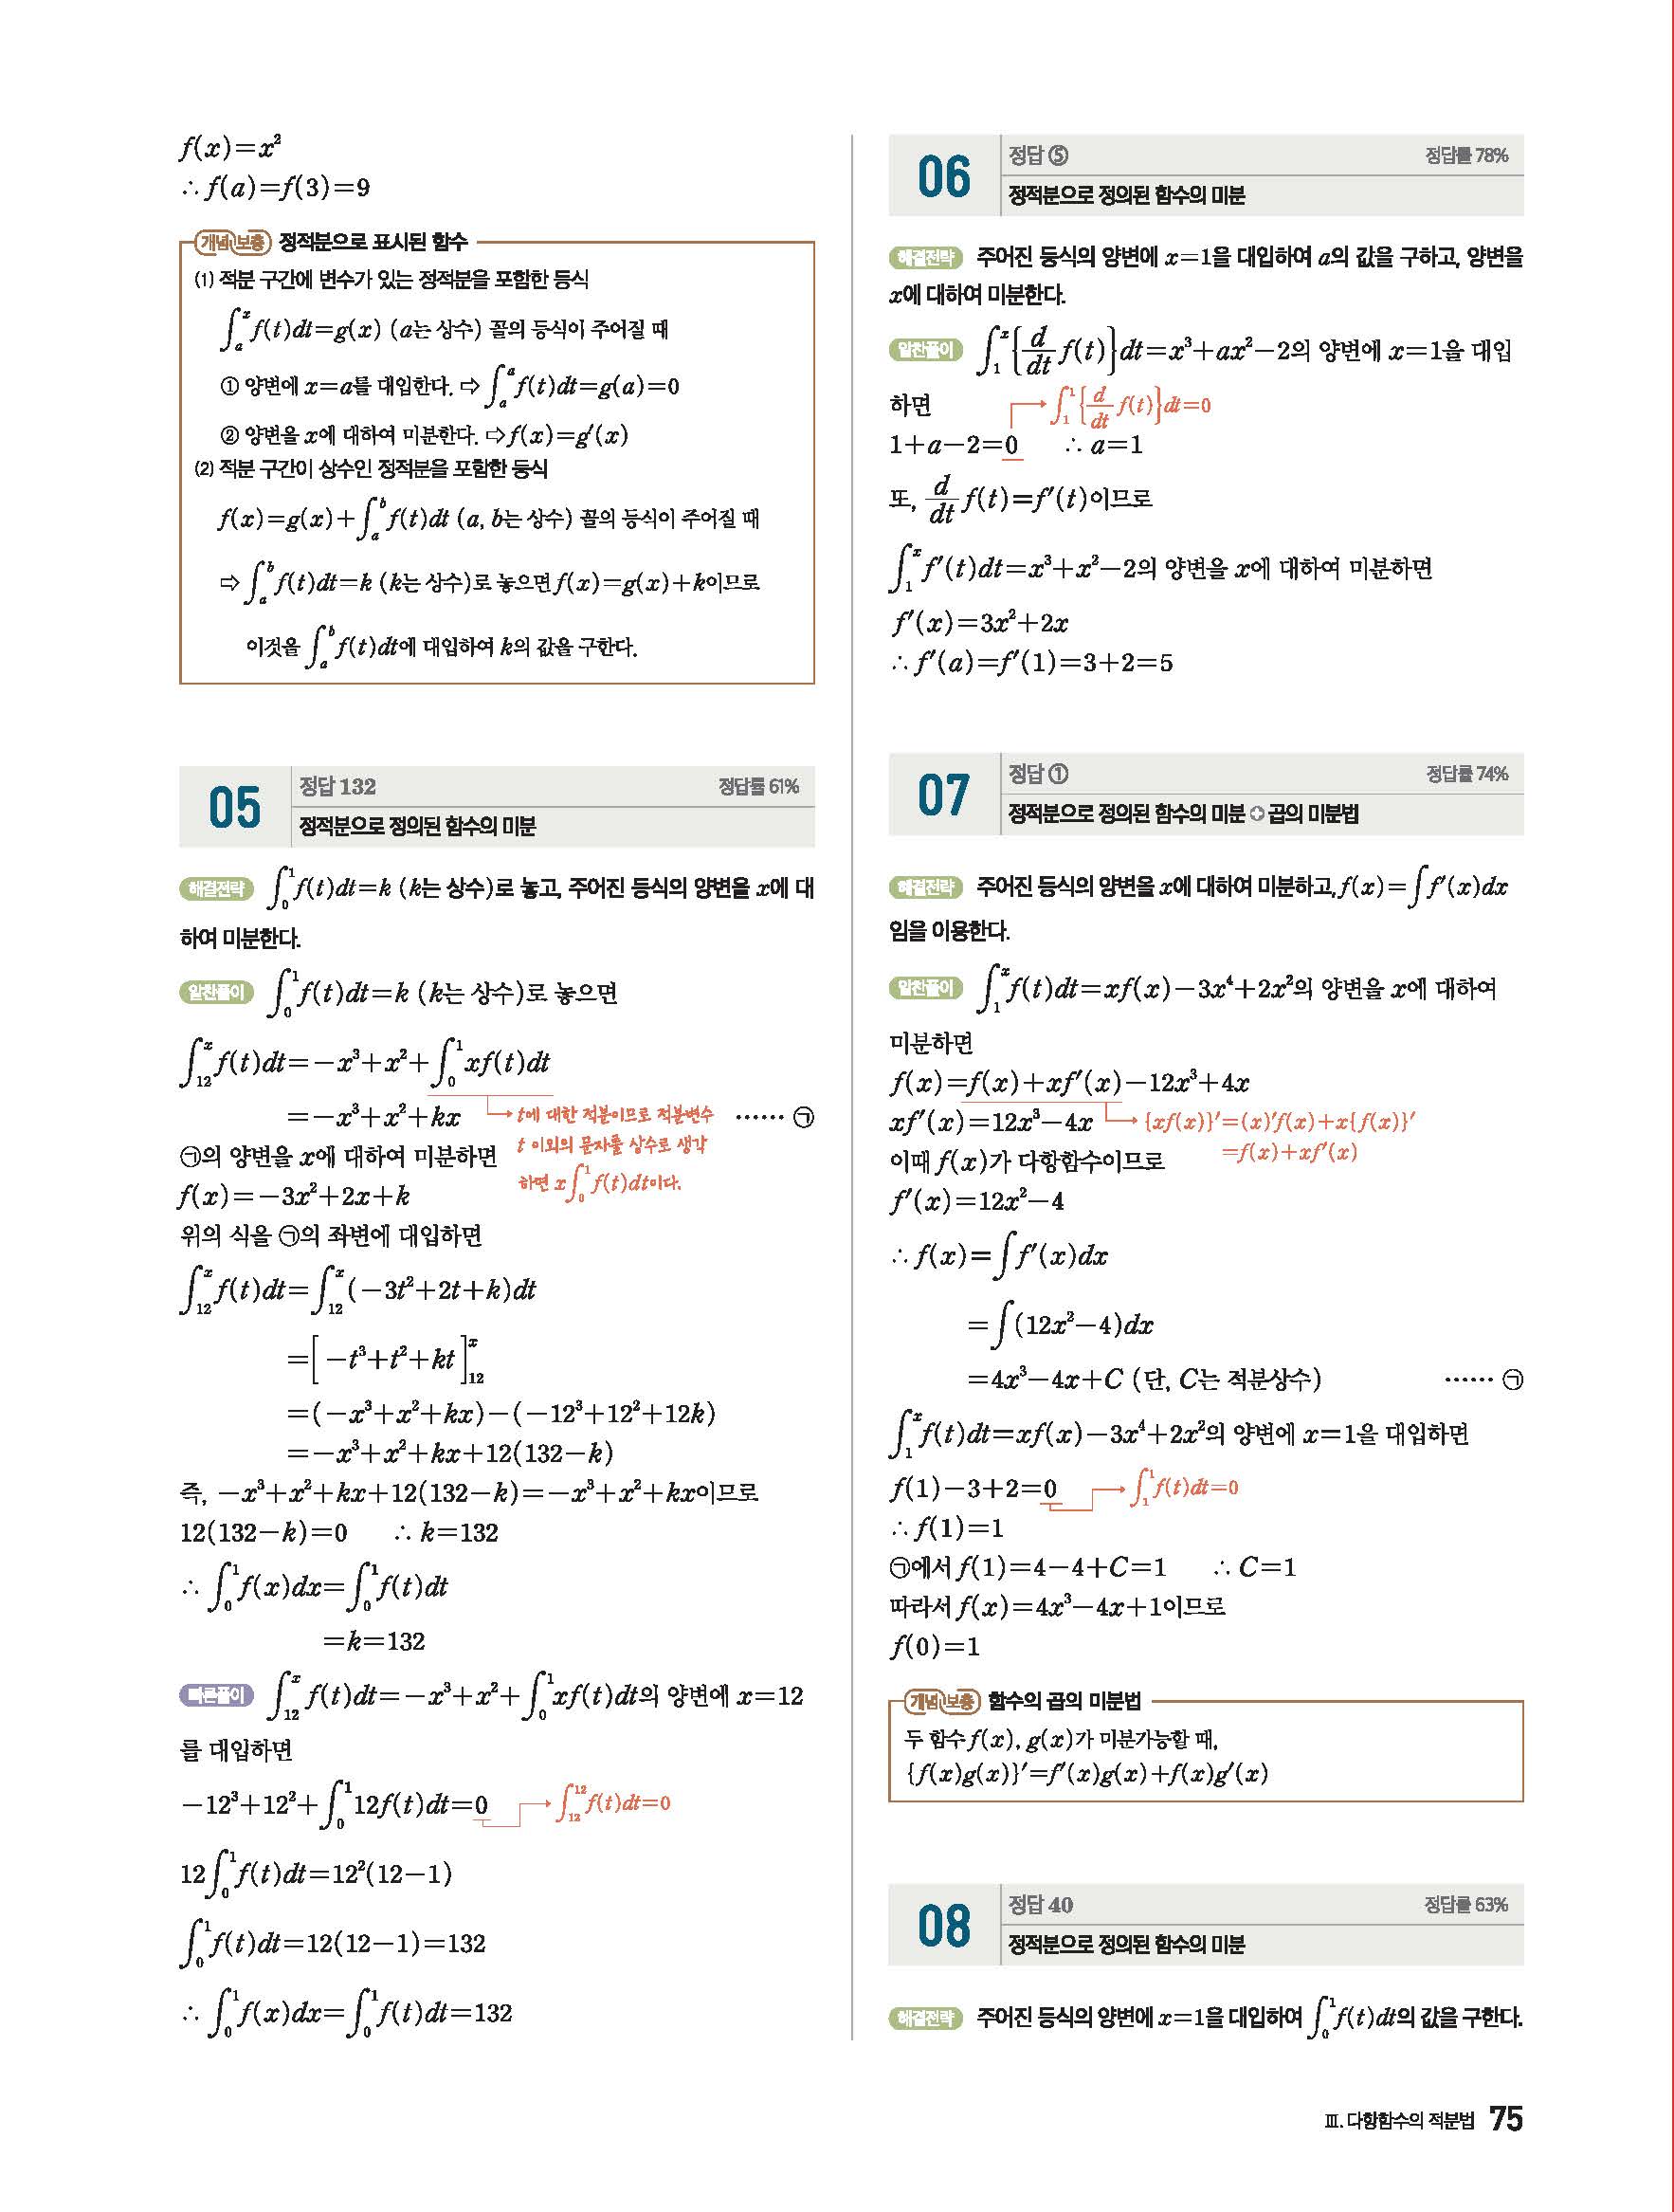 f(x)=x²
∴ f(a)=f(3)=9
개념보충 정적분으로 표시된 함수
(1) 적분 구간에 변수가 있는 정적분을 포함한 등식
∫ₐˣ f(t)dt=g(x) (a는 상수) 꼴의 등식이 주어질 때
① 양변에 x=a를 대입한다. ⇨ ∫ₐᵃ f(t)dt=g(a)=0
② 양변을 x에 대하여 미분한다. ⇨ f(x)=g′(x)
(2) 적분 구간이 상수인 정적분을 포함한 등식
f(x)=g(x)+∫ₐᵇ f(t)dt (a, b는 상수) 꼴의 등식이 주어질 때
⇨ ∫ₐᵇ f(t)dt=k (k는 상수)로 놓으면 f(x)=g(x)+k이므로
이것을 ∫ₐᵇ f(t)dt에 대입하여 k의 값을 구한다.
05 정답 132 정답률 61%
정적분으로 정의된 함수의 미분
해결전략 ∫₀¹ f(t)dt=k (k는 상수)로 놓고, 주어진 등식의 양변을 x에 대
하여 미분한다.
알찬풀이 ∫₀¹ f(t)dt=k (k는 상수)로 놓으면
∫₁₂ˣ f(t)dt=-x³+x²+∫₀¹ xf(t)dt
=-x³+x²+kx …… ㉠
t에 대한 적분이므로 적분변수
t 이외의 문자를 상수로 생각
하면 x∫₀¹ f(t)dt이다.
㉠의 양변을 x에 대하여 미분하면
f(x)=-3x²+2x+k
위의 식을 ㉠의 좌변에 대입하면
∫₁₂ˣ f(t)dt=∫₁₂ˣ (-3t²+2t+k)dt
=[-t³+t²+kt]₁₂ˣ
=(-x³+x²+kx)-(-12³+12²+12k)
=-x³+x²+kx+12(132-k)
즉, -x³+x²+kx+12(132-k)=-x³+x²+kx이므로
12(132-k)=0 ∴ k=132
∴ ∫₀¹ f(x)dx=∫₀¹ f(t)dt
=k=132
빠른풀이 ∫₁₂ˣ f(t)dt=-x³+x²+∫₀¹ xf(t)dt의 양변에 x=12
를 대입하면
-12³+12²+∫₀¹ 12f(t)dt=0 → ∫₁₂¹² f(t)dt=0
12∫₀¹ f(t)dt=12²(12-1)
∫₀¹ f(t)dt=12(12-1)=132
∴ ∫₀¹ f(x)dx=∫₀¹ f(t)dt=132
06 정답 ⑤ 정답률 78%
정적분으로 정의된 함수의 미분
해결전략 주어진 등식의 양변에 x=1을 대입하여 a의 값을 구하고, 양변을
x에 대하여 미분한다.
알찬풀이 ∫₁ˣ {d/dt f(t)}dt=x³+ax²-2의 양변에 x=1을 대입
하면 → ∫₁¹ {d/dt f(t)}dt=0
1+a-2=0 ∴ a=1
또, d/dt f(t)=f′(t)이므로
∫₁ˣ f′(t)dt=x³+x²-2의 양변을 x에 대하여 미분하면
f′(x)=3x²+2x
∴ f′(a)=f′(1)=3+2=5
07 정답 ① 정답률 74%
정적분으로 정의된 함수의 미분 ✚ 곱의 미분법
해결전략 주어진 등식의 양변을 x에 대하여 미분하고, f(x)=∫f′(x)dx
임을 이용한다.
알찬풀이 ∫₁ˣ f(t)dt=xf(x)-3x⁴+2x²의 양변을 x에 대하여
미분하면
f(x)=f(x)+xf′(x)-12x³+4x
xf′(x)=12x³-4x → {xf(x)}′=(x)′f(x)+x{f(x)}′
=f(x)+xf′(x)
이때 f(x)가 다항함수이므로
f′(x)=12x²-4
∴ f(x)=∫f′(x)dx
=∫(12x²-4)dx
=4x³-4x+C (단, C는 적분상수) …… ㉠
∫₁ˣ f(t)dt=xf(x)-3x⁴+2x²의 양변에 x=1을 대입하면
f(1)-3+2=0 → ∫₁¹ f(t)dt=0
∴ f(1)=1
㉠에서 f(1)=4-4+C=1 ∴ C=1
따라서 f(x)=4x³-4x+1이므로
f(0)=1
개념보충 함수의 곱의 미분법
두 함수 f(x), g(x)가 미분가능할 때,
{f(x)g(x)}′=f′(x)g(x)+f(x)g′(x)
08 정답 40 정답률 63%
정적분으로 정의된 함수의 미분
해결전략 주어진 등식의 양변에 x=1을 대입하여 ∫₀¹ f(t)dt의 값을 구한다.
Ⅲ. 다항함수의 적분법 75